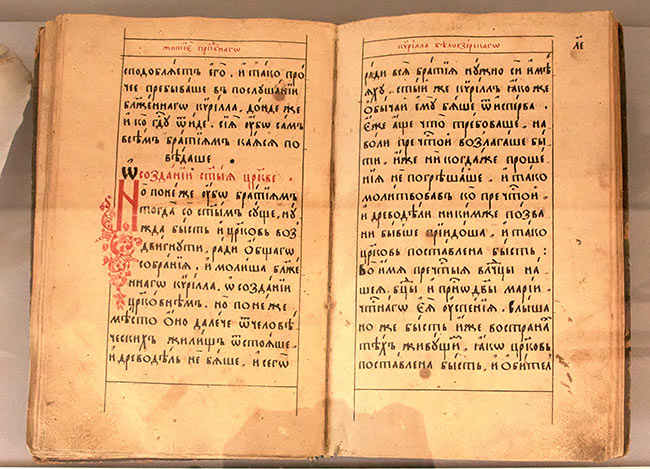 житїе прпⷣбнагѡ
сподоблѧетъ его. и тако про
чее пребываше въ послꙋшаніи
блаженнагѡ кѷрілла, дондеже
и ко гдⷭꙋ ѿиде. сїѧ ꙋбѡ самъ
всѣмъ братїѧмъ каѧсѧ по
вѣдаше
ѡ созданїи ст҃ыѧ црⷪкве.
Но понеже ꙋбѡ братїѧмъ
тогда со ст҃ымъ сꙋще, нꙋ
жда бысть и црⷪковь воз
двигнꙋти, ради ѻбщагѡ
собранїѧ. и молиша блаже
ннагѡ кѷрілла, ѡ созданїи
црⷪковнѣмъ. но понеже
мѣсто ѻно далече ѿ человѣ
ческихъ жилищъ ѿстоѧше.
и древодѣль не бѧше, и сегѡ
кѷрілла бѣлоезерскагѡ
л҃е
ради всѧ братїѧ нꙋжно си имѣ
ѧхꙋ. ст҃ый же кѷріллъ ꙗкоже
ѻбычай емꙋ бѧше ѿисперва.
еже аще что требоваше, на
волю пречⷭтой возлагаше бы
ти. иже ни когдаже проше
нїѧ не погрѣшаше. и тако
молитвовавъ ко пречⷭтой.
и древодѣли никимже позва
ни бывше прїидоша. и тако
црⷪковь поставлена бысть:
во имѧ пречⷭтыѧ влⷣцы на
шеѧ. бцⷣы и приснодв҃ы марїи
чтⷭнагѡ еѧ ѹспенїѧ. слыша
но же бысть иже во странахъ
тѣхъ живꙋщїй, ꙗкѡ црⷪковь
поставлена бысть, и ѻбител